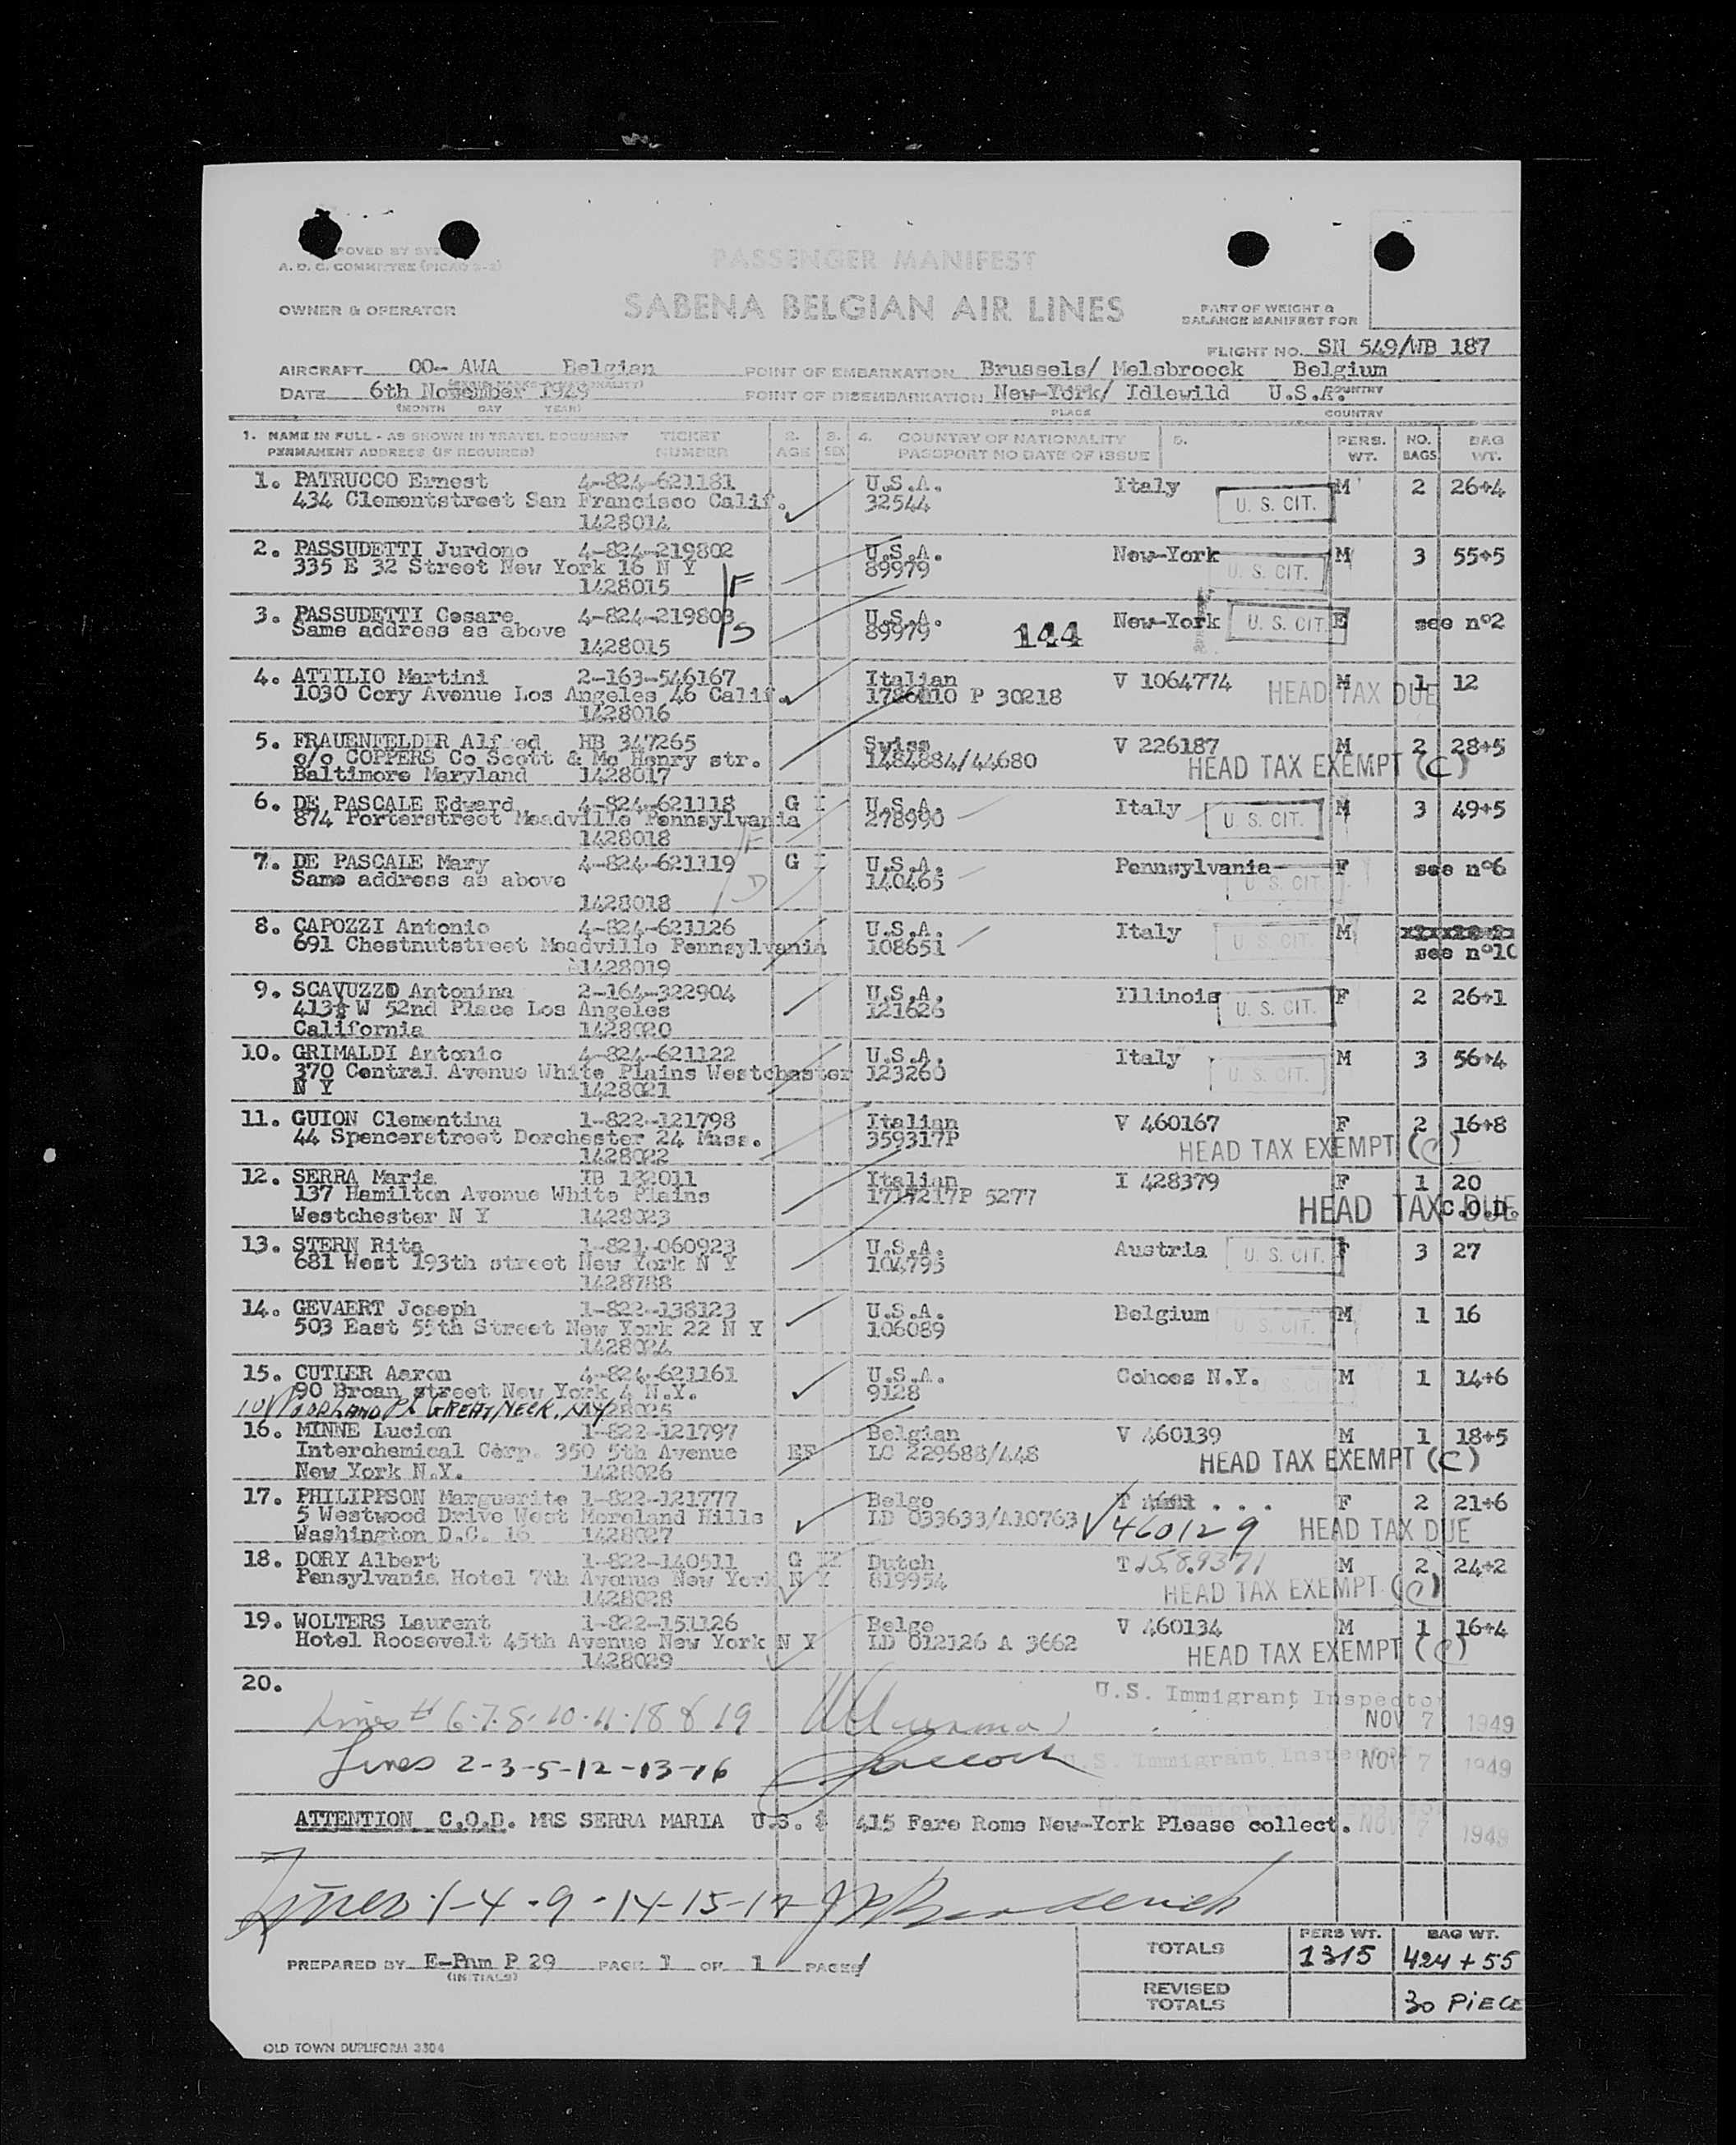 A. D. C. COMMITTEE
PASSENGER MANIFEST
OWNER & OPERATOR
SABENA BELGIAN AIR LINES
PART OF WEIGHT &
BALANCE MANIFEST FOR
FLIGHT NO. SN 549/WB 187
AIRCRAFT OO-AWA Belgian POINT OF EMBARKATION Brussels/ Melsbroeck Belgium
DATE 6th November 1949 POINT OF DISEMBARKATION New-York/ Idlewild U.S.A. COUNTRY
(MONTH DAY YEAR) PLACE COUNTRY
1. NAME IN FULL - AS SHOWN IN TRAVEL DOCUMENT TICKET 2. 3. 4. COUNTRY OF NATIONALITY 5. PERS. NO. BAG
PERMANENT ADDRESS (IF REQUIRED) NUMBER AGE SEX PASSPORT NO DATE OF ISSUE WT. BAGS WT.
1. PATRUCCO Ernest 4-824-621181 U.S.A. Italy M 2 26+4
434 Clementstreet San Francisco Calif. 32544 U. S. CIT.
1428014
2. PASSUDETTI Jurdono 4-824-219802 U.S.A. New-York M 3 55+5
335 E 32 Street New York 16 N Y 89979 U. S. CIT.
1428015 F
3. PASSUDETTI Cesare 4-824-219803 U.S.A. New-York U. S. CIT. see n°2
Same address as above S 89979 144
1428015
4. ATTILIO Martini 2-163-546167 Italian V 1064774 M 1 12
1030 Cory Avenue Los Angeles 46 Calif. P 30218 HEAD TAX DUE
1428016
5. FRAUENFELDER Alfred HB 347265 Swiss V 226187 M 2 28+5
c/o COPPERS Co Scott & Mc Henry str. 1484884/44680 HEAD TAX EXEMPT (C)
Baltimore Maryland 1428017
6. DE PASCALE Edward 4-824-621118 G I U.S.A. Italy M 3 49+5
874 Porterstreet Meadville Pennsylvania 278990 U. S. CIT.
1428018 F
7. DE PASCALE Mary 4-824-621119 G I U.S.A. Pennsylvania F see n°6
Same address as above D 140465 U. S. CIT.
1428018
8. CAPOZZI Antonio 4-824-621126 U.S.A. Italy M
691 Chestnutstreet Meadville Pennsylvania 108651 U. S. CIT. see n°10
1428019
9. SCAVUZZO Antonina 2-164-322904 U.S.A. Illinois F 2 26+1
W 52nd Place Los Angeles 121626 U. S. CIT.
California 1428020
10. GRIMALDI Antonio 4-824-621122 U.S.A. Italy M 3 56+4
370 Central Avenue White Plains Westchester 123260 U. S. CIT.
N Y 1428021
11. GUION Clementina 1-822-121798 Italian V 460167 F 2 16+8
44 Spencerstreet Dorchester 24 Mass. 359317P HEAD TAX EXEMPT (C)
1428022
12. SERRA Maria Italian I 428379 F 1 20
137 Hamilton Avenue White Plains 5277 C.O.D.
Westchester N Y 1428023 HEAD TAX DUE
13. STERN Rita 1-821-060923 U.S.A. Austria U. S. CIT. F 3 27
681 West 193th street New York N Y 104795
1428788
14. GEVAERT Joseph 1-822-138123 U.S.A. Belgium M 1 16
503 East 55th Street New York 22 N Y 106089 U. S. CIT.
1428024
15. CUTLER Aaron 4-824-621161 U.S.A. Cohoes N.Y. M 1 14+6
90 Broan street New York 4 N.Y. 9128
WOODLAND PL GREAT NECK, NY 1428025
16. MINNE Lucien 1-822-121797 Belgian V 460139 M 1 18+5
Interchemical Corp. 350 5th Avenue EF LC 229688/448 HEAD TAX EXEMPT (C)
New York N.Y. 1428026
17. PHILIPPSON Marguerite 1-822-121777 Belge T F 2 21+6
5 Westwood Drive West Moreland Hills LD 033633/A10763 460129 HEAD TAX DUE
Washington D.C. 16 1428027
18. DORY Albert 1-822-140511 G Dutch T 1589371 M 2 24+2
Pensylvania Hotel 7th Avenue New York N Y 819954 HEAD TAX EXEMPT (C)
1428028
19. WOLTERS Laurent 1-822-151126 Belge V 460134 M 1 16+4
Hotel Roosevelt 45th Avenue New York N Y LD 012126 A 3662 HEAD TAX EXEMPT (C)
1428029
20.
Lines # 6-7-8-10-11-18 & 19 U.S. Immigrant Inspector
NOV 7 1949
Lines 2-3-5-12-13-16 U.S. Immigrant Inspector NOV 7 1949
ATTENTION C.O.D. MRS SERRA MARIA U.S. $ 415 Fare Rome New-York Please collect. NOV 7 1949
Lines 1-4-9-14-15-17
TOTALS PERS WT. 1315 BAG WT. 424+55
PREPARED BY E-Pnm P 29 PAGE 1 OF 1 PAGES
(INITIALS)
REVISED TOTALS 30 PIECE
OLD TOWN DUPLIFORM 3304